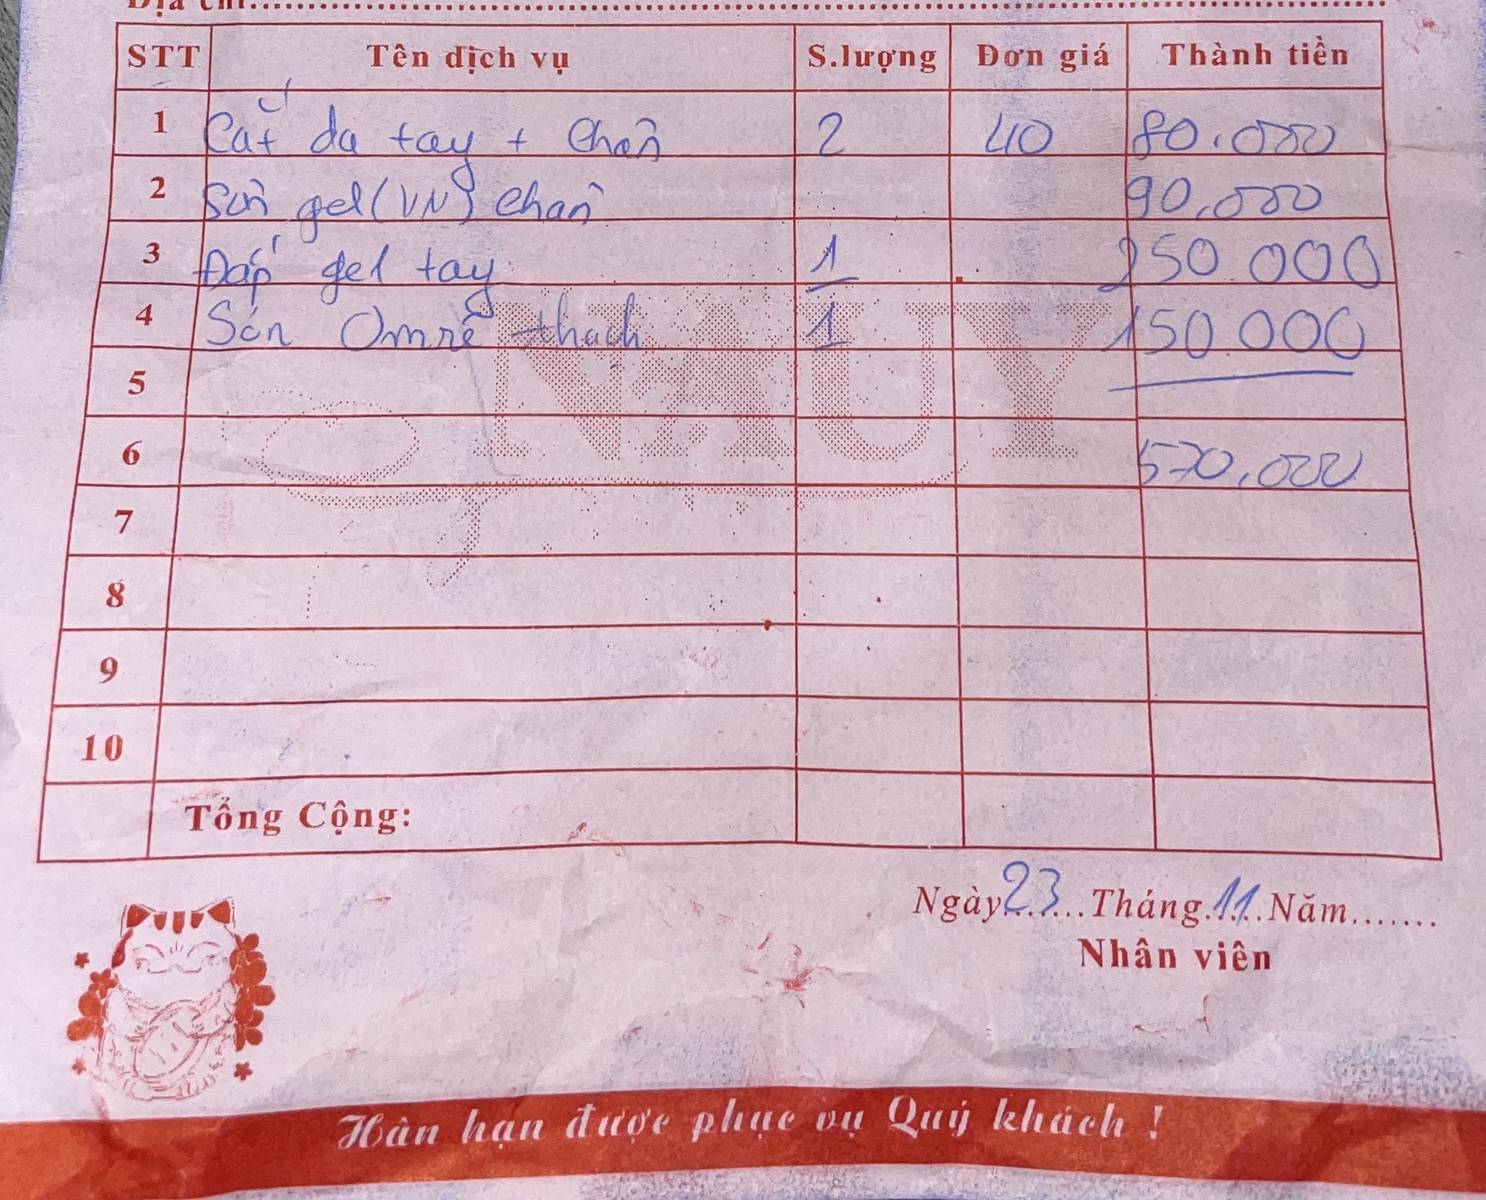 Địa chỉ:
STT Tên dịch vụ S.lượng Đơn giá Thành tiền
1 Cắt da tay + chân 2 40 80.000
2 Sơn gel (VN) chân 90.000
3 Đắp gel tay 1 250 000
4 Sơn Omrê thạch 1 150 000
5
6 570.000
7
8
9
10
Tổng Cộng:
NAUY
Ngày 23 Tháng 11 Năm
Nhân viên
Hân hạn được phục vụ Quý khách !